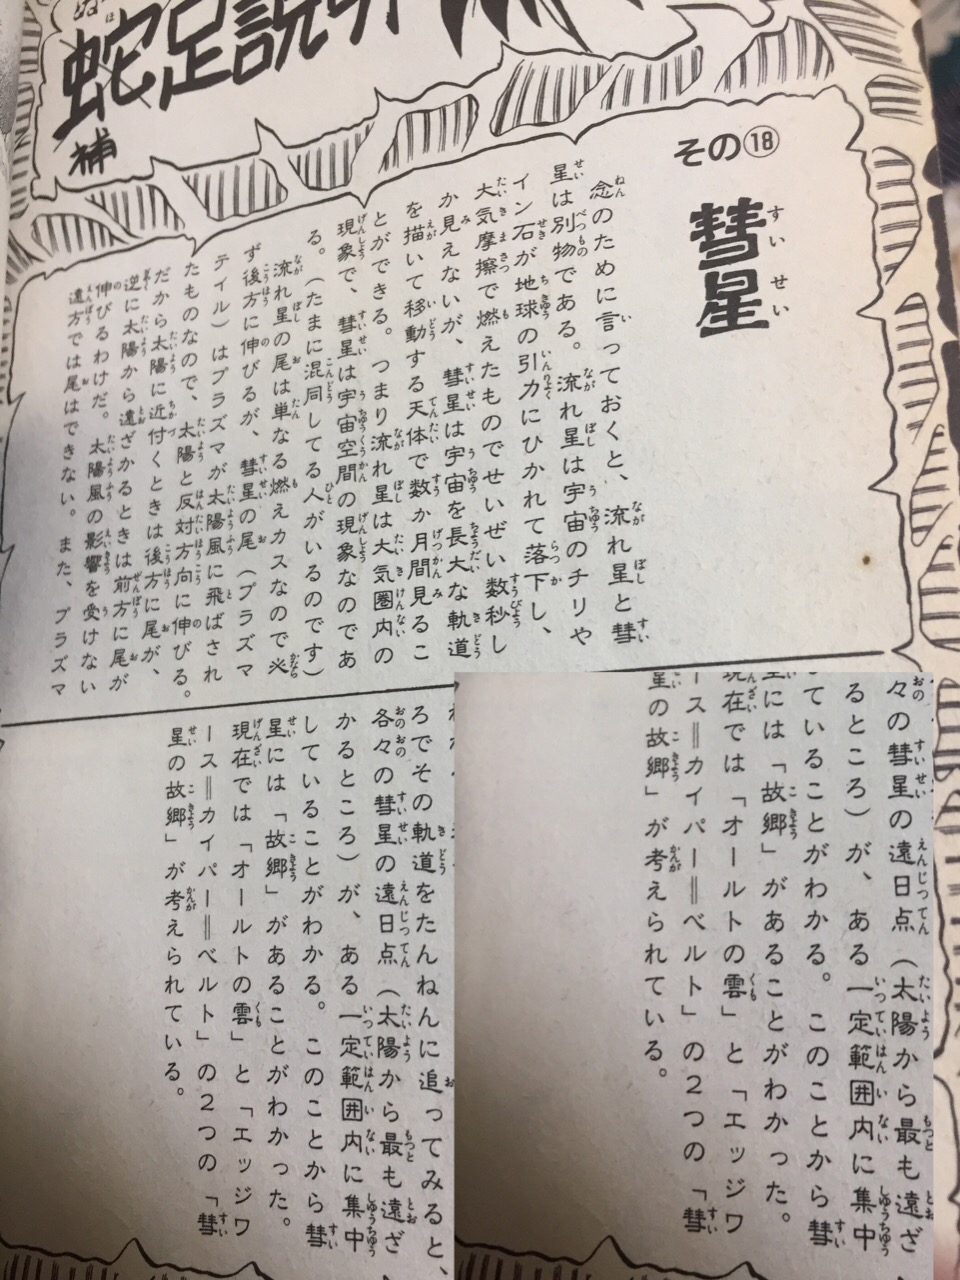 蛇足説明
補
その⑱
彗星
念のために言っておくと、流れ星と彗
星は別物である。流れ星は宇宙のチリや
イン石が地球の引力にひかれて落下し、
大気摩擦で燃えたものでせいぜい数秒し
か見えないが、彗星は宇宙を長大な軌道
を描いて移動する天体で数か月間見るこ
とができる。つまり流れ星は大気圏内の
現象で、彗星は宇宙空間の現象なのであ
る。(たまに混同してる人がいるのです)
流れ星の尾は単なる燃えカスなので必
ず後方に伸びるが、彗星の尾(プラズマ
テイル)はプラズマが太陽風に飛ばされ
たものなので、太陽と反対方向に伸びる。
だから太陽に近付くときは後方に尾が、
逆に太陽から遠ざかるときは前方に尾が
伸びるわけだ。太陽風の影響を受けない
遠方では尾はできない。また、プラズマ
ろでその軌道をたんねんに追ってみると、
各々の彗星の遠日点(太陽から最も遠ざ
かるところ)が、ある一定範囲内に集中
していることがわかる。このことから彗
星には「故郷」があることがわかった。
現在では「オールトの雲」と「エッジワ
ース=カイパー=ベルト」の2つの「彗
星の故郷」が考えられている。
々の彗星の遠日点(太陽から最も遠ざ
るところ)が、ある一定範囲内に集中
ていることがわかる。このことから彗
星には「故郷」があることがわかった。
現在では「オールトの雲」と「エッジワ
ース=カイパー=ベルト」の2つの「彗
星の故郷」が考えられている。